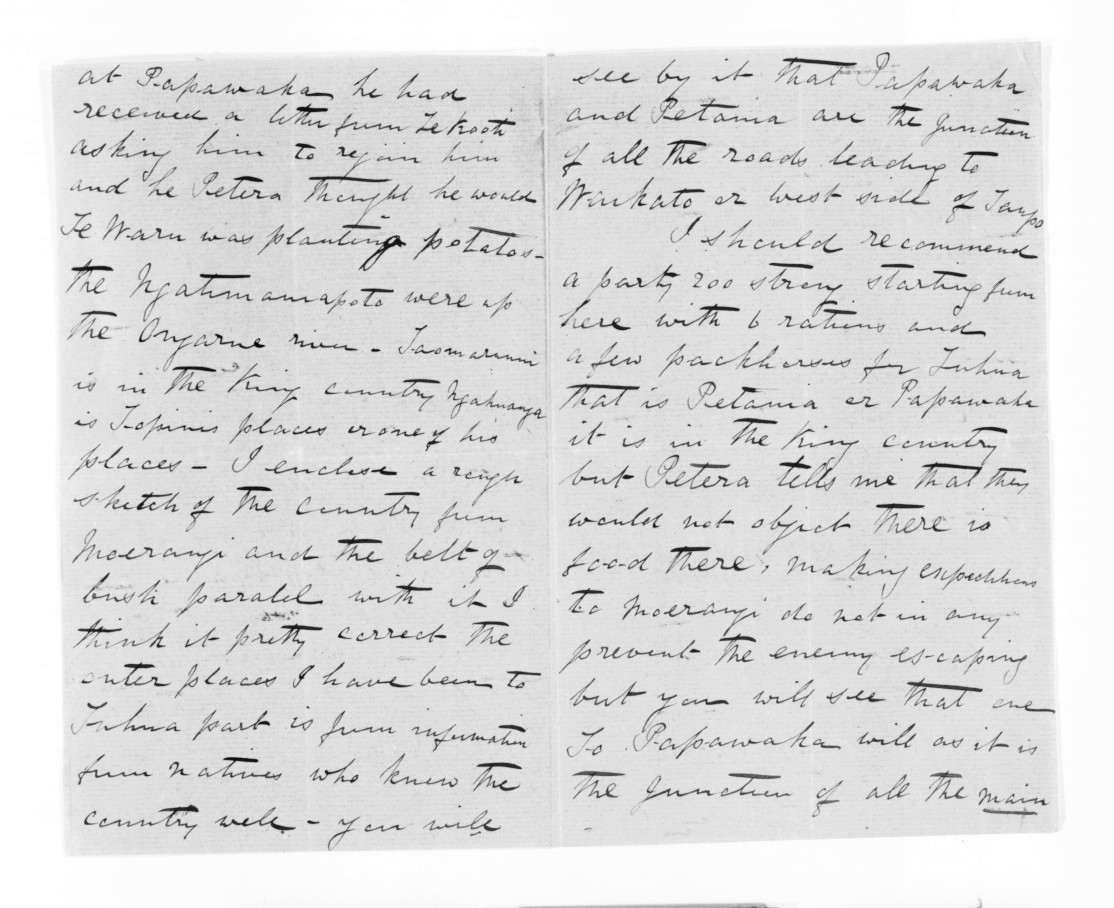 at Papawaka he had
received a letter from Te Kooti
asking him to rejoin him
and he Petera thought he would
Te Waru was planting potatos -
the Ngatimaniapoto were up
the Ongarue river - Taomarunui
is in the King country Ngahuanga
is Topinis places or one of his
places - I enclose a rough
sketch of the country from
Moerangi and the belt of
bush paralel with it I
think it pretty correct the
outer places I have been to
Tuhua part is from information
from natives who know the
country well - you will
see by it that Papawaka
and Petania are the junction
of all the roads leading to
Waikato or west side of Taupo
I should recommend
a party 200 strong starting from
here with 6 rations and
a few packhorses for Tuhua
that is Petania or Papawaka
it is in the King country
but Petera tells me that they
would not object there is
food there, making expeditions
to Moerangi do not in any
prevent the enemy escaping
but you will see that one
To Papawaka will as it is
the junction of all the main